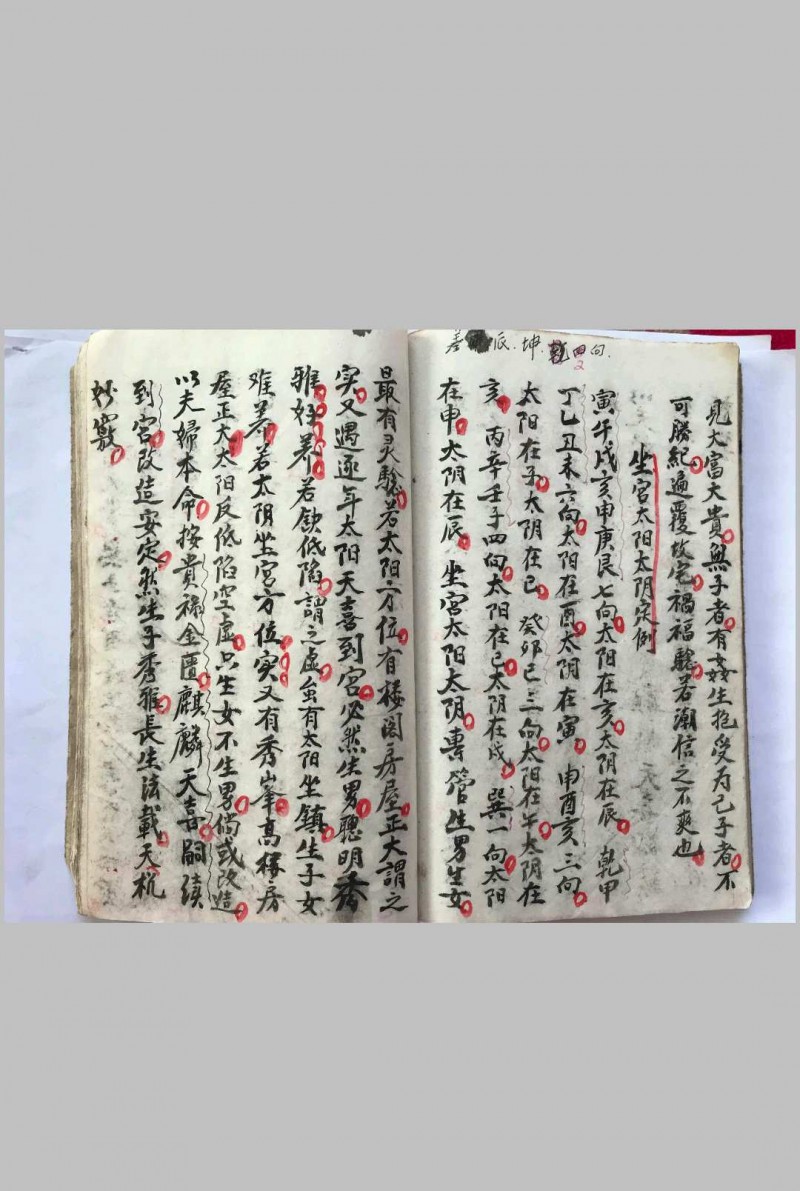 差辰.坤.乾四向.
2
見大富大貴無子者有姦生抱受为己子者不
可勝紀遍覆改宅禍福騐若潮信之不爽也
坐宮太阳太阴定例
寅午戌亥申庚艮七向太阳在亥太阴在辰 乾甲
丁乙丑未六向太阳在酉太阴在寅 申酉亥三向
太阳在子太阴在巳 癸卯巳三向太阳在午太阴在
亥 丙辛壬子四向太阳在巳太阴在戌 巽一向太阳
在申太阴在辰 坐宮太阳太阴專管生男生女
最有灵騐若太阳方位有楼阁房屋正大謂之
实又遇逐年太阳天喜到宮必然生男聰明秀
雅好养若欽低陷謂之虚虽有太阳坐鎮生子女
难养若太阴坐宮方位实又有秀峯高楼房
屋正大太阳反低陷空虚只生女不生男倘或改造
以夫婦本命按貴祿金匱麒麟天喜嗣續
到宮改造安定然生子秀雅長生法載天机
妙竅